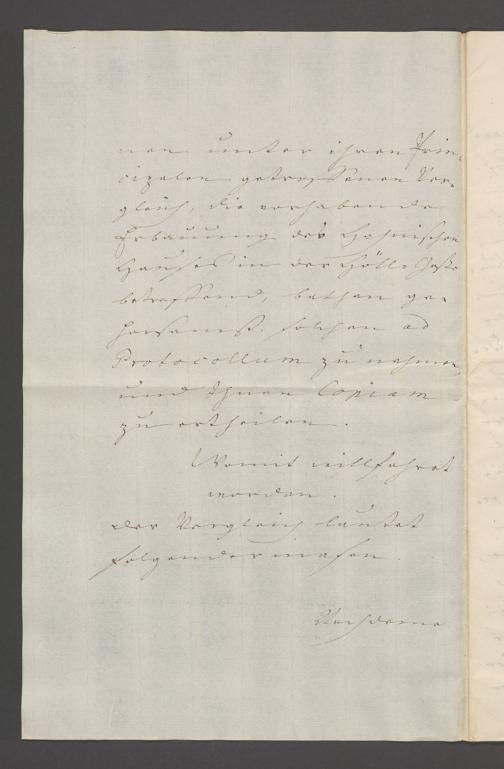 nen unter ihren Prin-
cipalen getroffenen Ver-
gleich, die vorhabende
Erbauung des Hohnischen
Hauses in der Hölle
betreffend, bathen ge-
horsamst, solchen ad
Protocollum zu nehmen,
und Ihnen Copiam
zu ertheilen.
Womit willfahret
worden.
der Vergleich lautet
folgendermasen.
Nachdeme